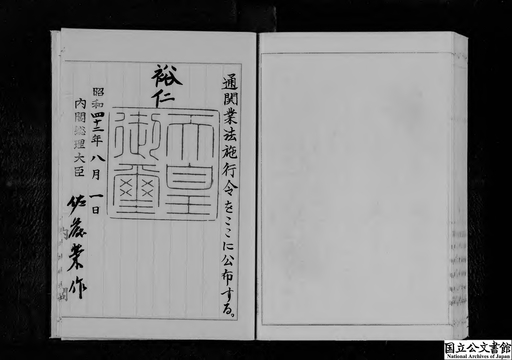 通関業法施行令をここに公布する。
裕仁
天皇
御璽
昭和四十三年八月一日
内閣総理大臣 佐藤榮作
国立公文書館
National Archives of Japan